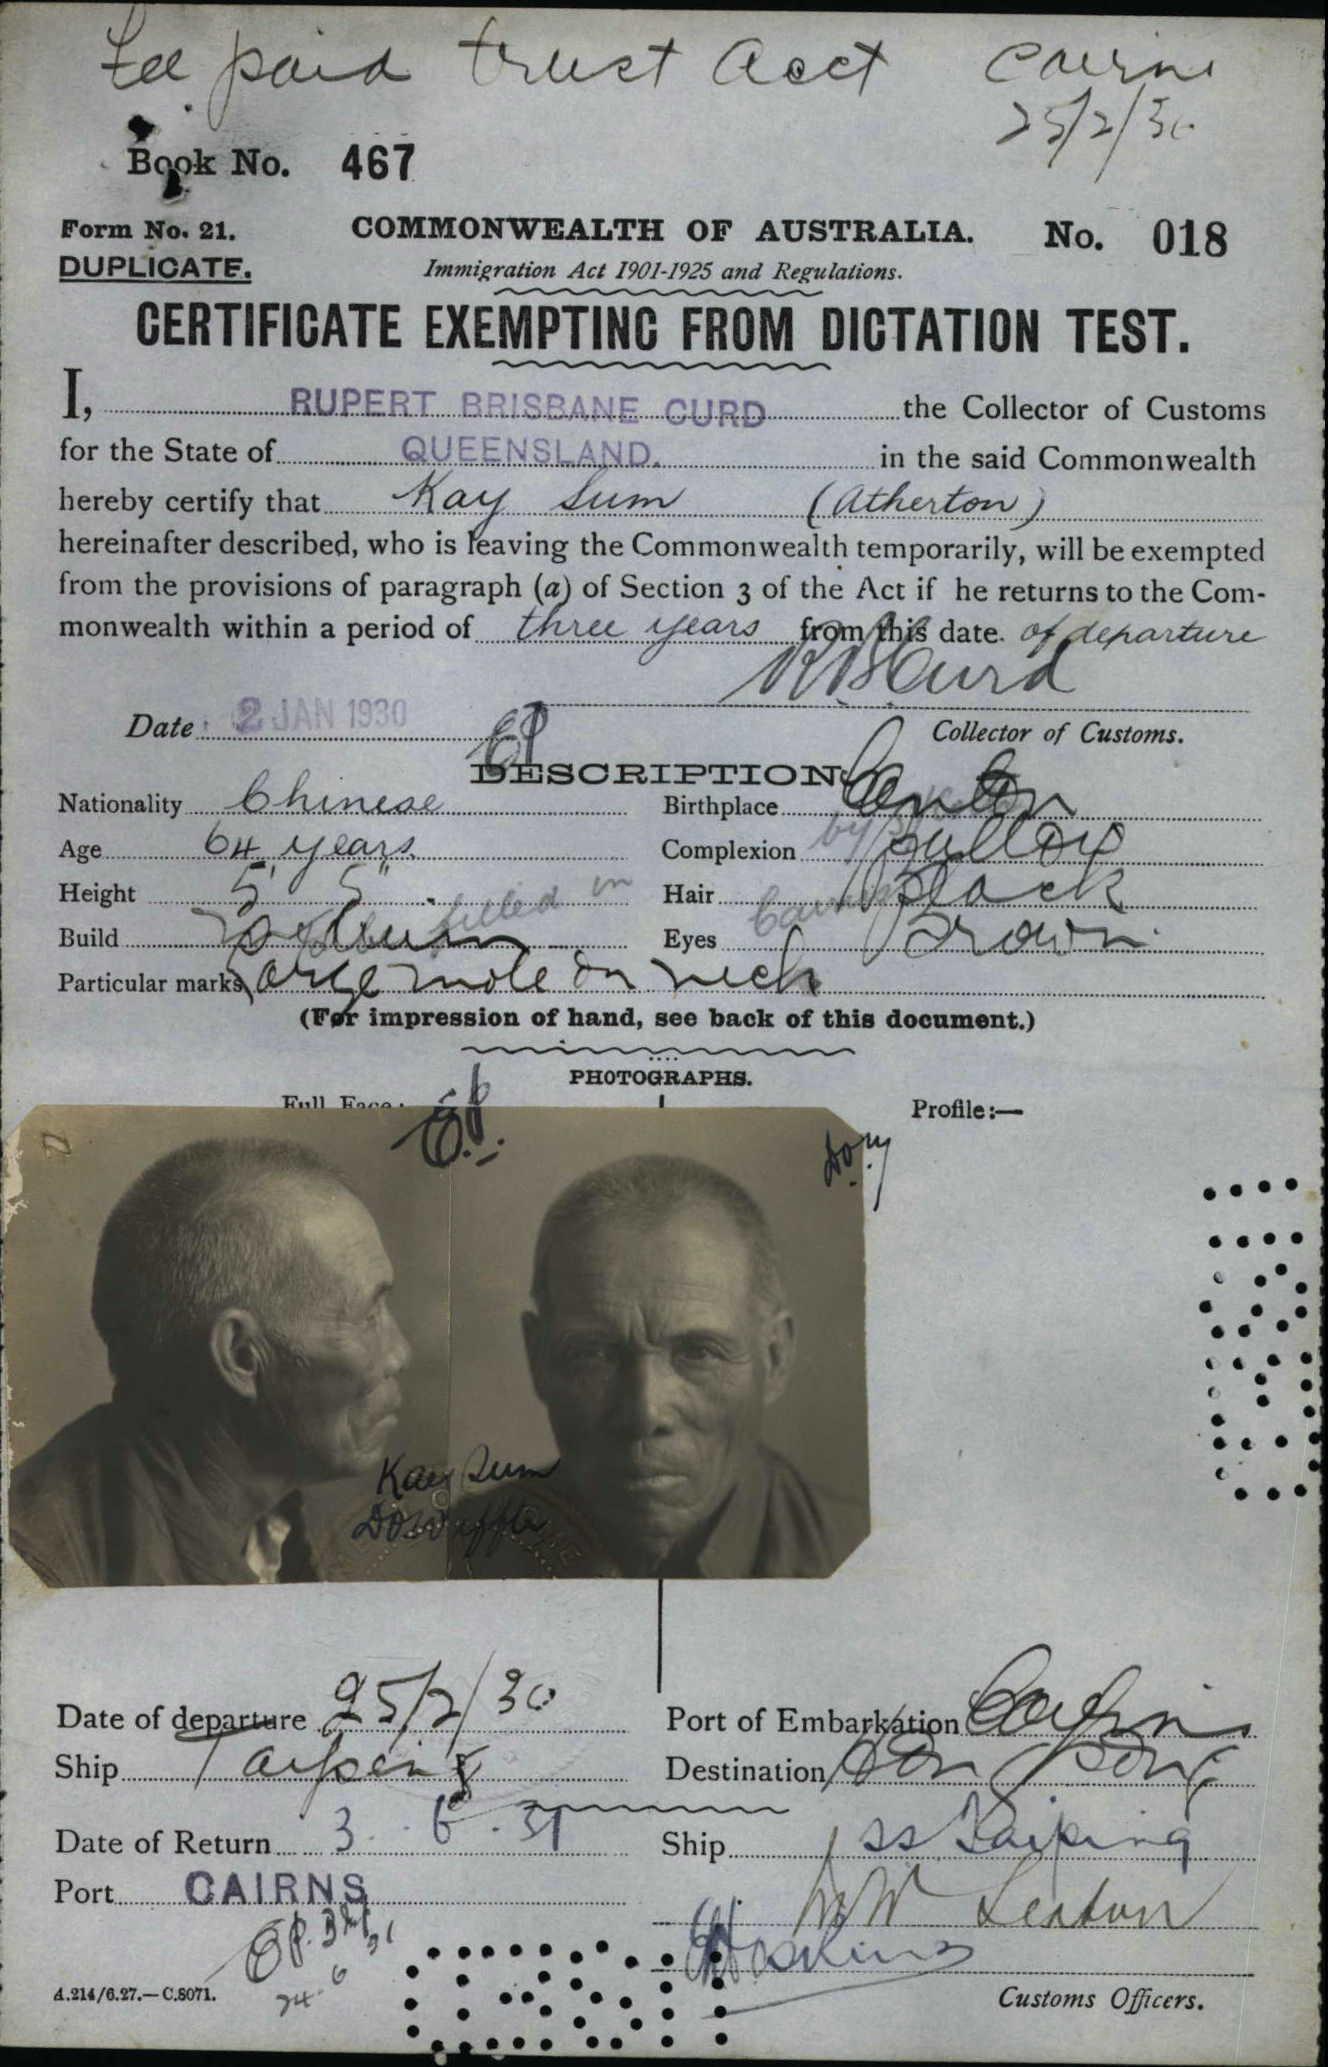 Fee paid Trust Acct Cairns
25/2/30
Book No. 467
Form No. 21. COMMONWEALTH OF AUSTRALIA. No. 018
DUPLICATE. Immigration Act 1901-1925 and Regulations.
CERTIFICATE EXEMPTING FROM DICTATION TEST.
I, RUPERT BRISBANE CURD the Collector of Customs
for the State of QUEENSLAND. in the said Commonwealth
hereby certify that Kay Sum (Atherton)
hereinafter described, who is leaving the Commonwealth temporarily, will be exempted
from the provisions of paragraph (a) of Section 3 of the Act if he returns to the Com-
monwealth within a period of three years from this date of departure
R B Curd
Date 2 JAN 1930 Collector of Customs.
DESCRIPTION
Nationality Chinese Birthplace Canton
Age 64 years Complexion Sallow
Height 5' 5" Hair Black
Build Medium Eyes Brown
to be filled in by Cairns
Particular marks Large mole on neck
(For impression of hand, see back of this document.)
PHOTOGRAPHS.
Full Face:
Profile:—
Kay Sum
Date of departure 25/2/30 Port of Embarkation Cairns
Ship Taiping Destination Hong Kong
Date of Return 3.6.31 Ship SS Taiping
Port CAIRNS
Hoskins
24.6
A.214/6.27.—C.8071. Customs Officers.